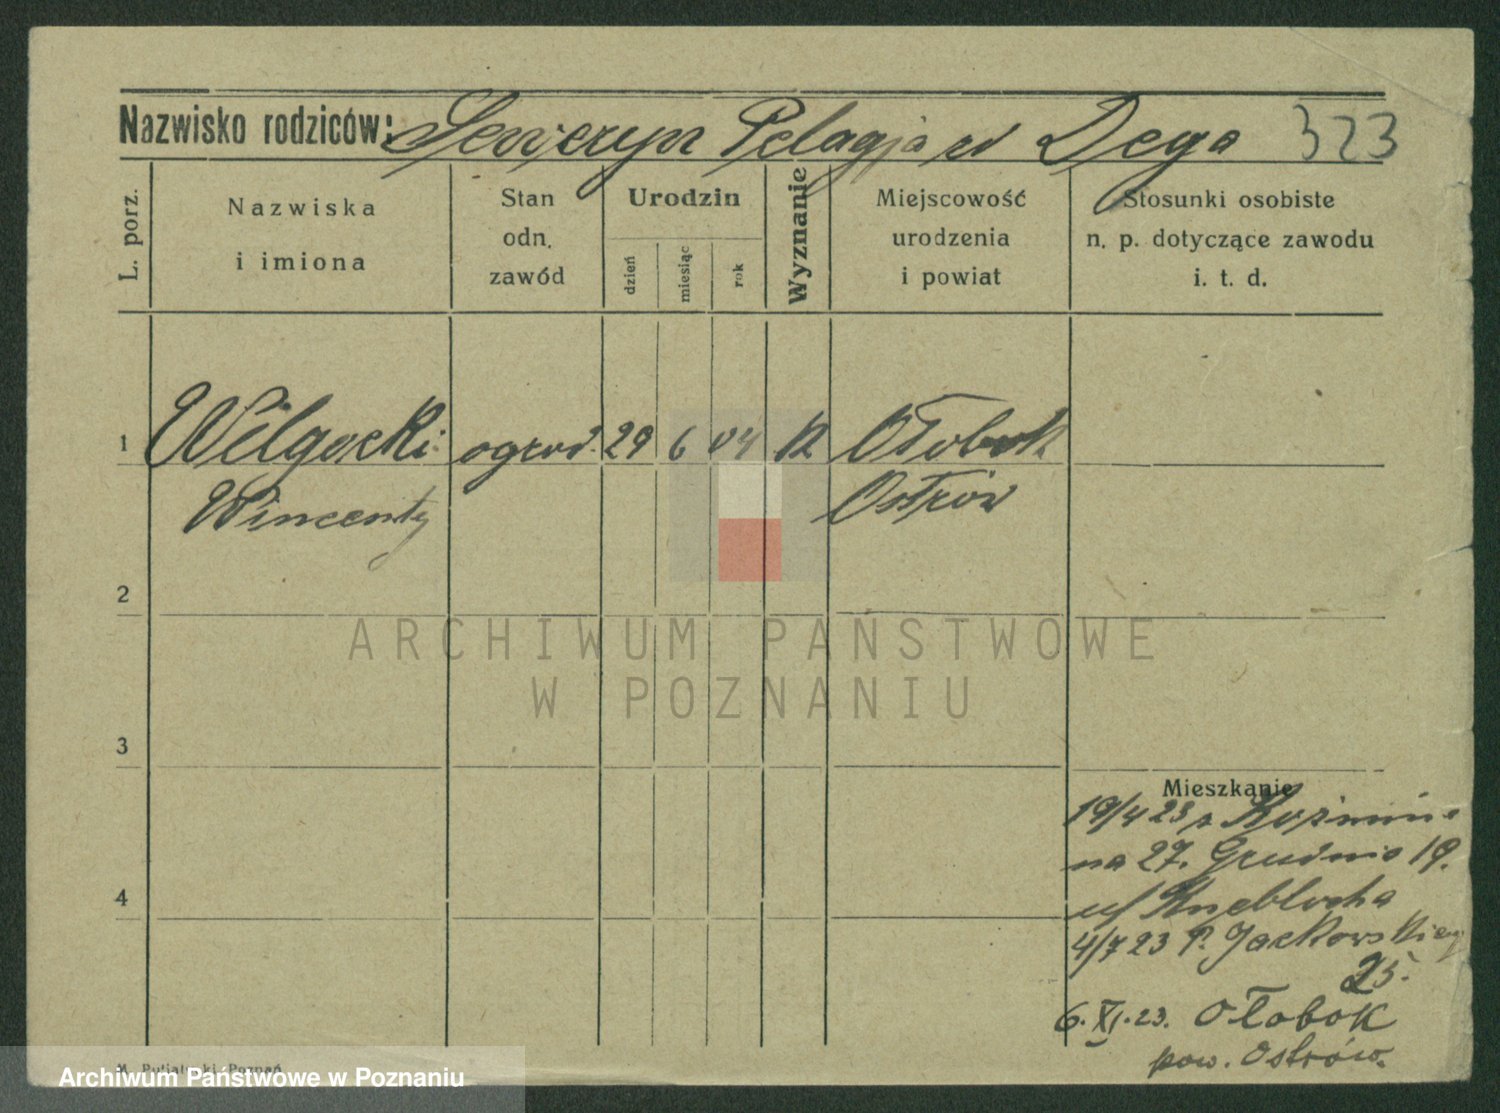 Nazwisko rodziców: Seweryn Pelagja zd Dega 323
L. porz.
Nazwiska
i imiona
Stan
odn.
zawód
Urodzin
dzień
miesiąc
rok
Wyznanie
Miejscowość
urodzenia
i powiat
Stosunki osobiste
n. p. dotyczące zawodu
i. t. d.
1 Wilgocki ogrod. 29 6 04 K Ołobok
Wincenty Ostrów
2
ARCHIWUM PAŃSTWOWE
W POZNANIU
3
Mieszkanie
19/4 23 z Koźmina
na 27. Grudnia 19.
u/ Kneblocha
4
4/7 23 P. Jackowskiego
25.
6. XI. 23. Ołobok
pow. Ostrów.
Poznań
Archiwum Państwowe w Poznaniu